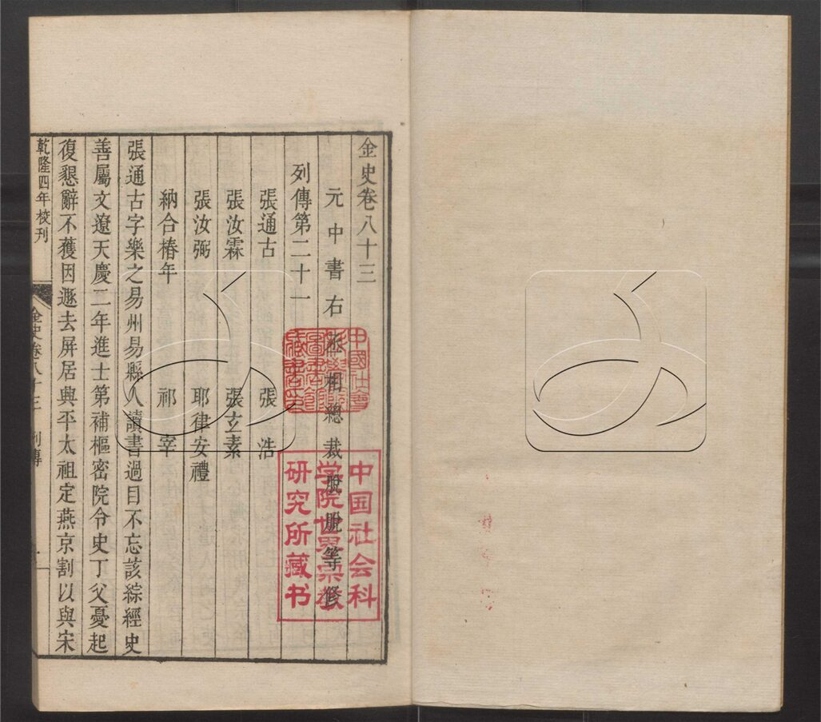 金史卷八十三
元中書右丞相總裁脫脫等修
列傳第二十一
張通古 張浩
張汝霖 張玄素
張汝弼 耶律安禮
納合椿年 祁宰
張通古字樂之易州易縣人讀書過目不忘該綜經史
善屬文遼天慶二年進士第補樞密院令史丁父憂起
復懇辭不獲因遯去屏居興平太祖定燕京割以與宋
乾隆四年校刊
金史卷八十三 列傳
中国社会科
学院世界宗教
研究所藏书